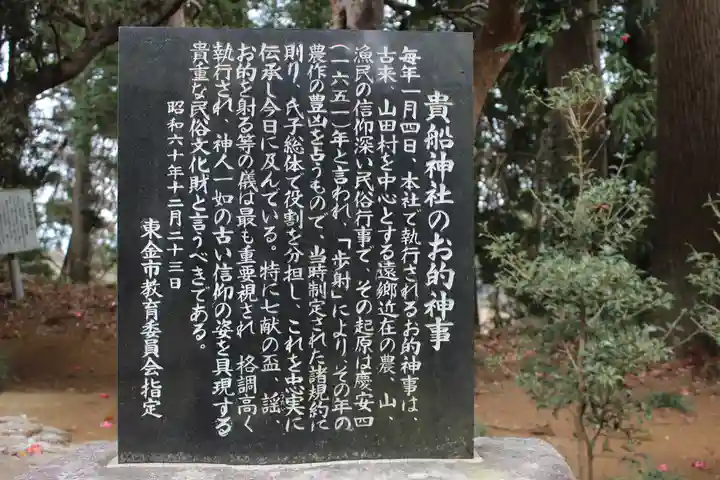 貴船神社のお的神事
毎年一月四日、本社で執行されるお的神事は、
古来、山田村を中心とする遠郷近在の農、山、
漁民の信仰深い民俗行事で、その起原は慶安四
(一六五一)年と言われ、「歩射」により、その年の
農作の豊凶を占うもので、当時制定された諸規約に
則り、氏子総体で役割を分担し、これを忠実に
伝承し今日に及んでいる。特に七献の盃、謡、
お的を射る等の儀は最も重要視され 格調高く
執行され、神人一如の古い信仰の姿を具現する
貴重な民俗文化財と言うべきである。
昭和六十年十二月二十三日
東金市教育委員会指定